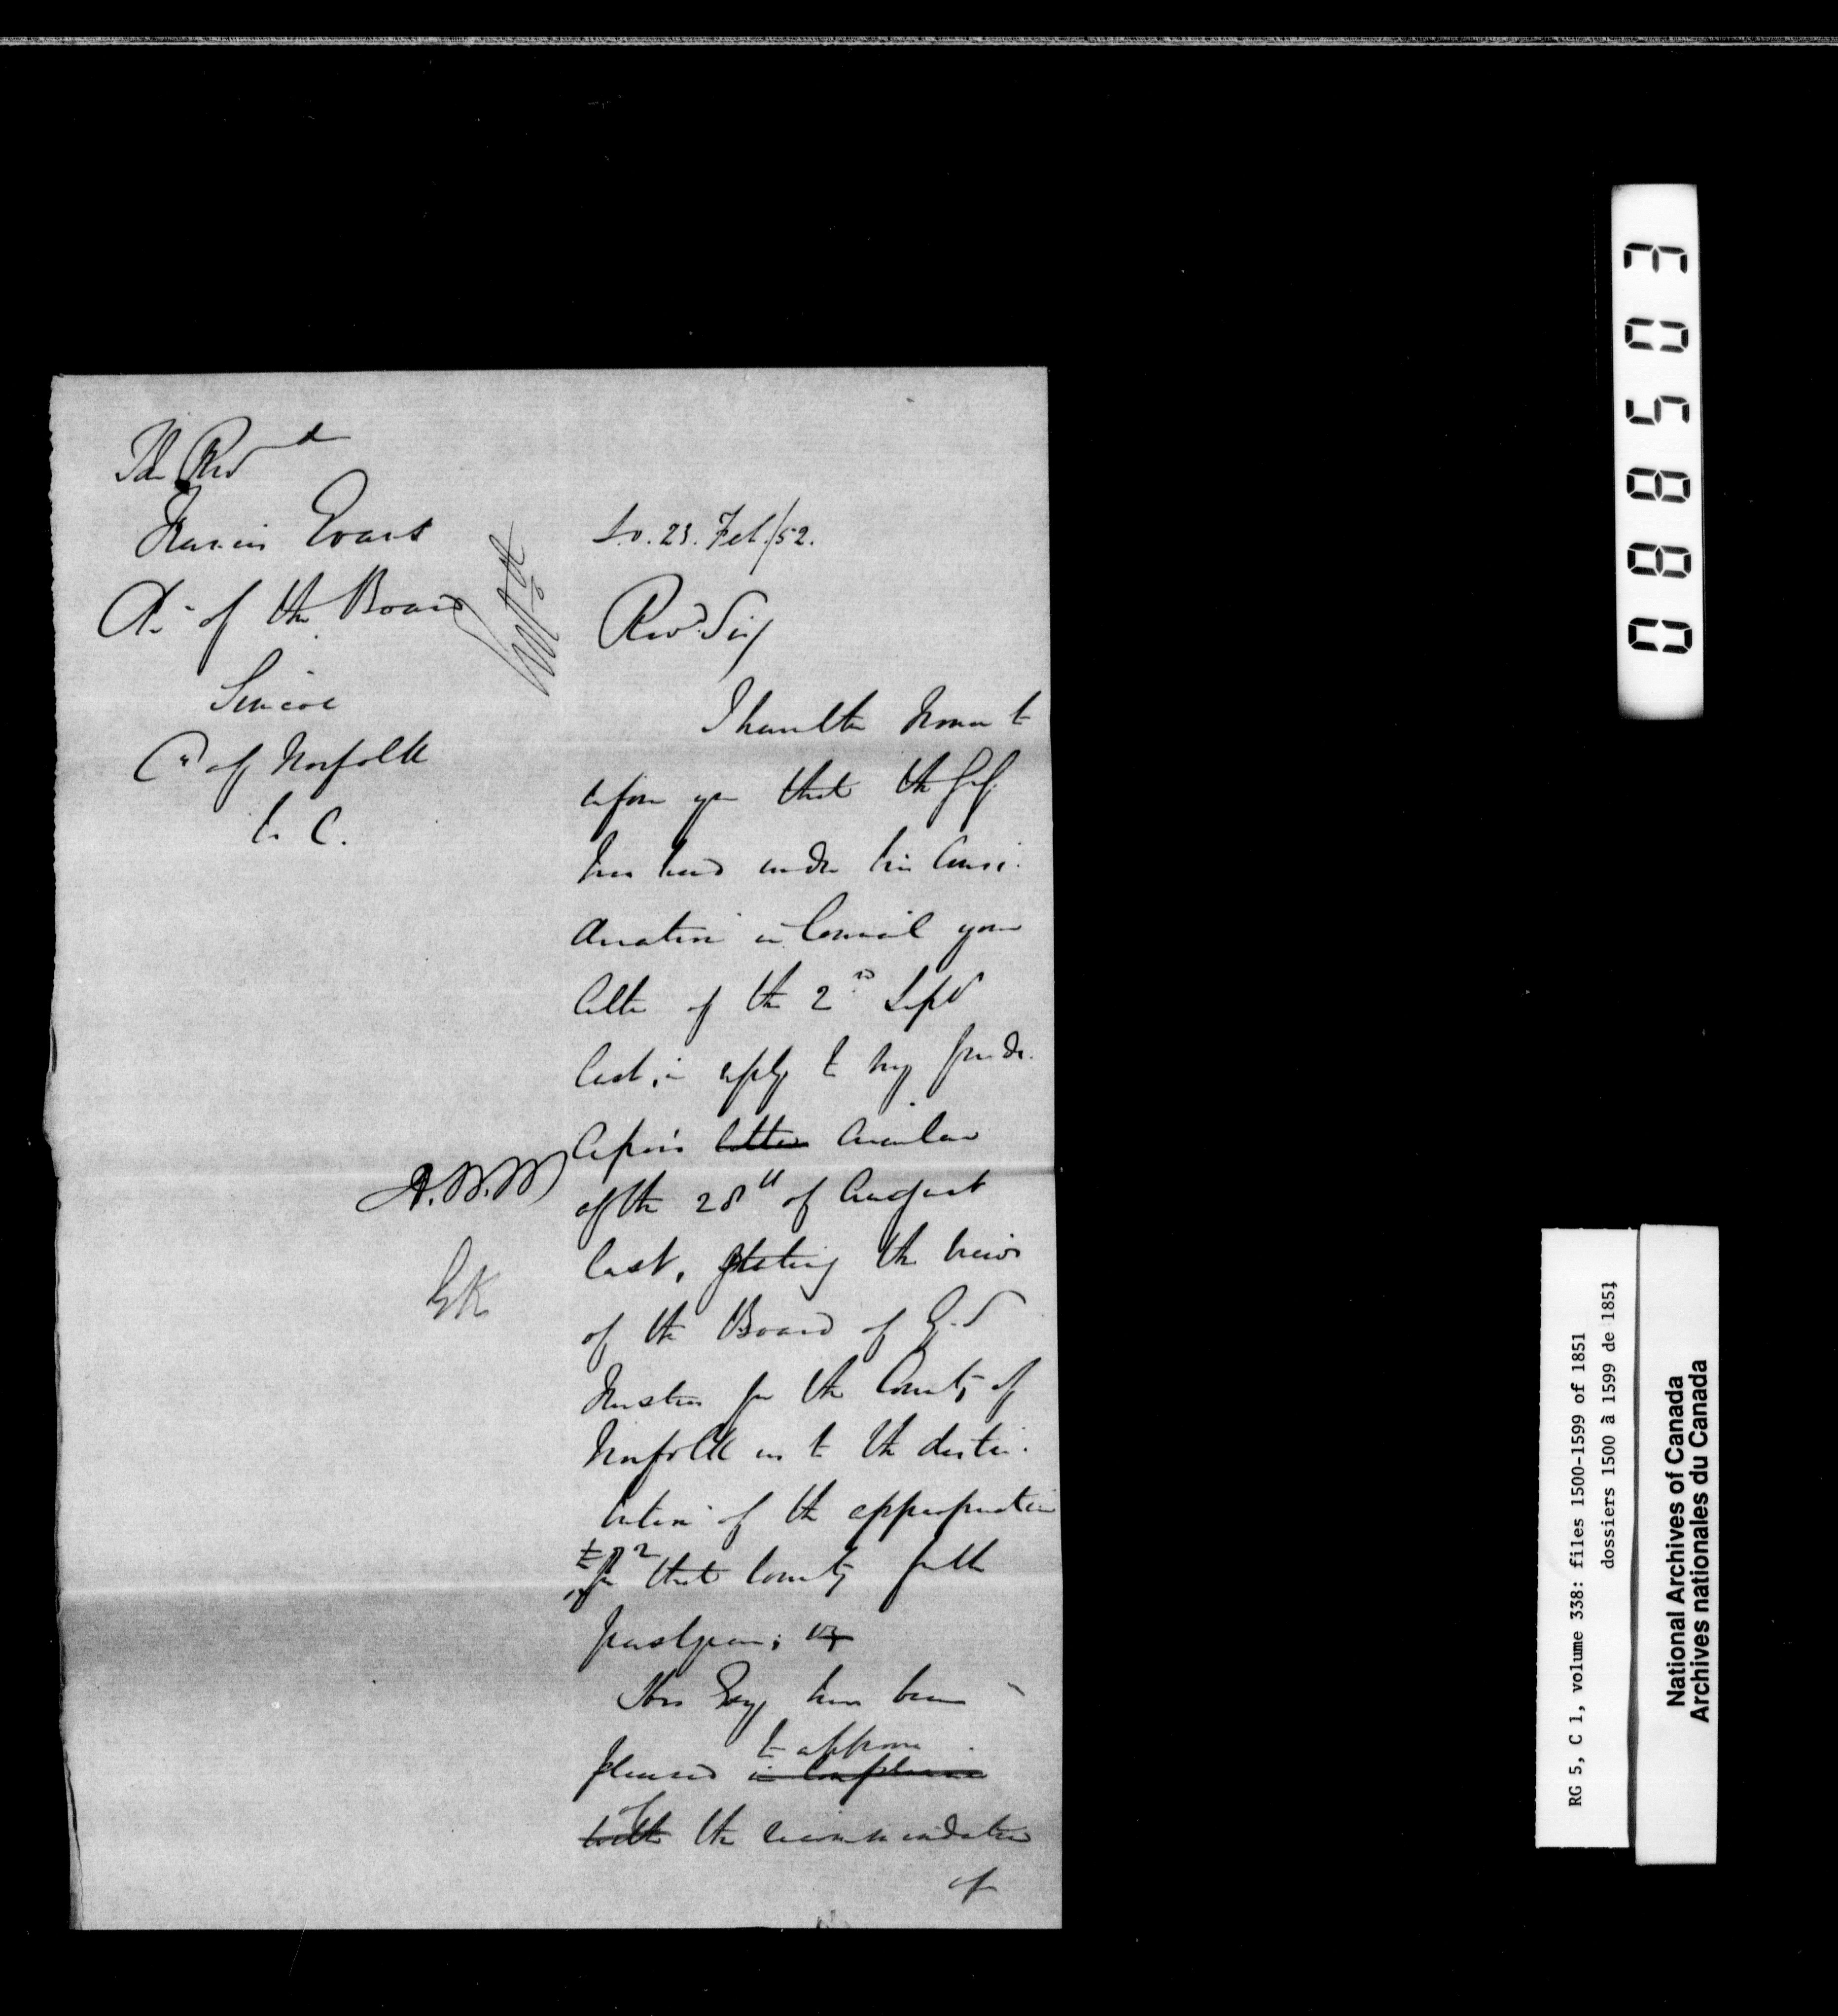 The Revd
Francis Evans
Ch. of the Board
Simcoe
Co of Norfolk
C.
S.O. 23. Feb/52.
Revd Sir/
I have the honor to
inform you that the
has had under his Consi-
deration in Council your
letter of the 2nd Sept
last, in reply to my prede-
cessor's letter Circular
of the 28th of August
last, stating the views
of the Board of G. S
Trustees for the County of
Norfolk as to the distri-
bution of the appropriation
for that County for the
past year;
His Exy has been
pleased in compliance
to approve
with the recommendation
of
of
A.N.M
GK
088503
RG 5, C 1, volume 338: files 1500-1599 of 1851
dossiers 1500 à 1599 de 1851
National Archives of Canada
Archives nationales du Canada